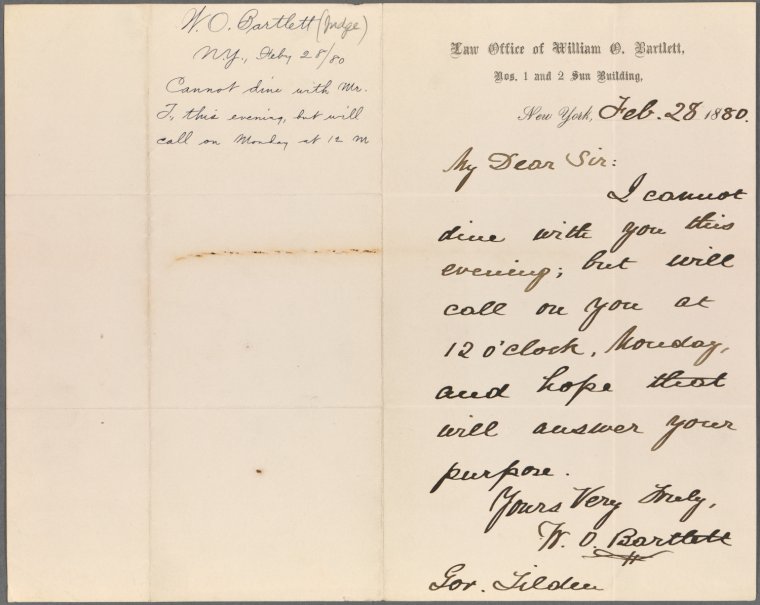 W. O. Bartlett (Judge)
N.Y., Feby 28/80
Cannot dine with Mr.
T, this evening, but will
call on Monday at 12 M
Law Office of William O. Bartlett,
Nos. 1 and 2 Sun Building,
New York, Feb. 28 1880.
My Dear Sir:
I cannot
dine with you this
evening; but will
call on you at
12 o'clock, Monday,
and hope that
will answer your
purpose.
Yours Very Truly,
W. O. Bartlett
Gov. Tilden